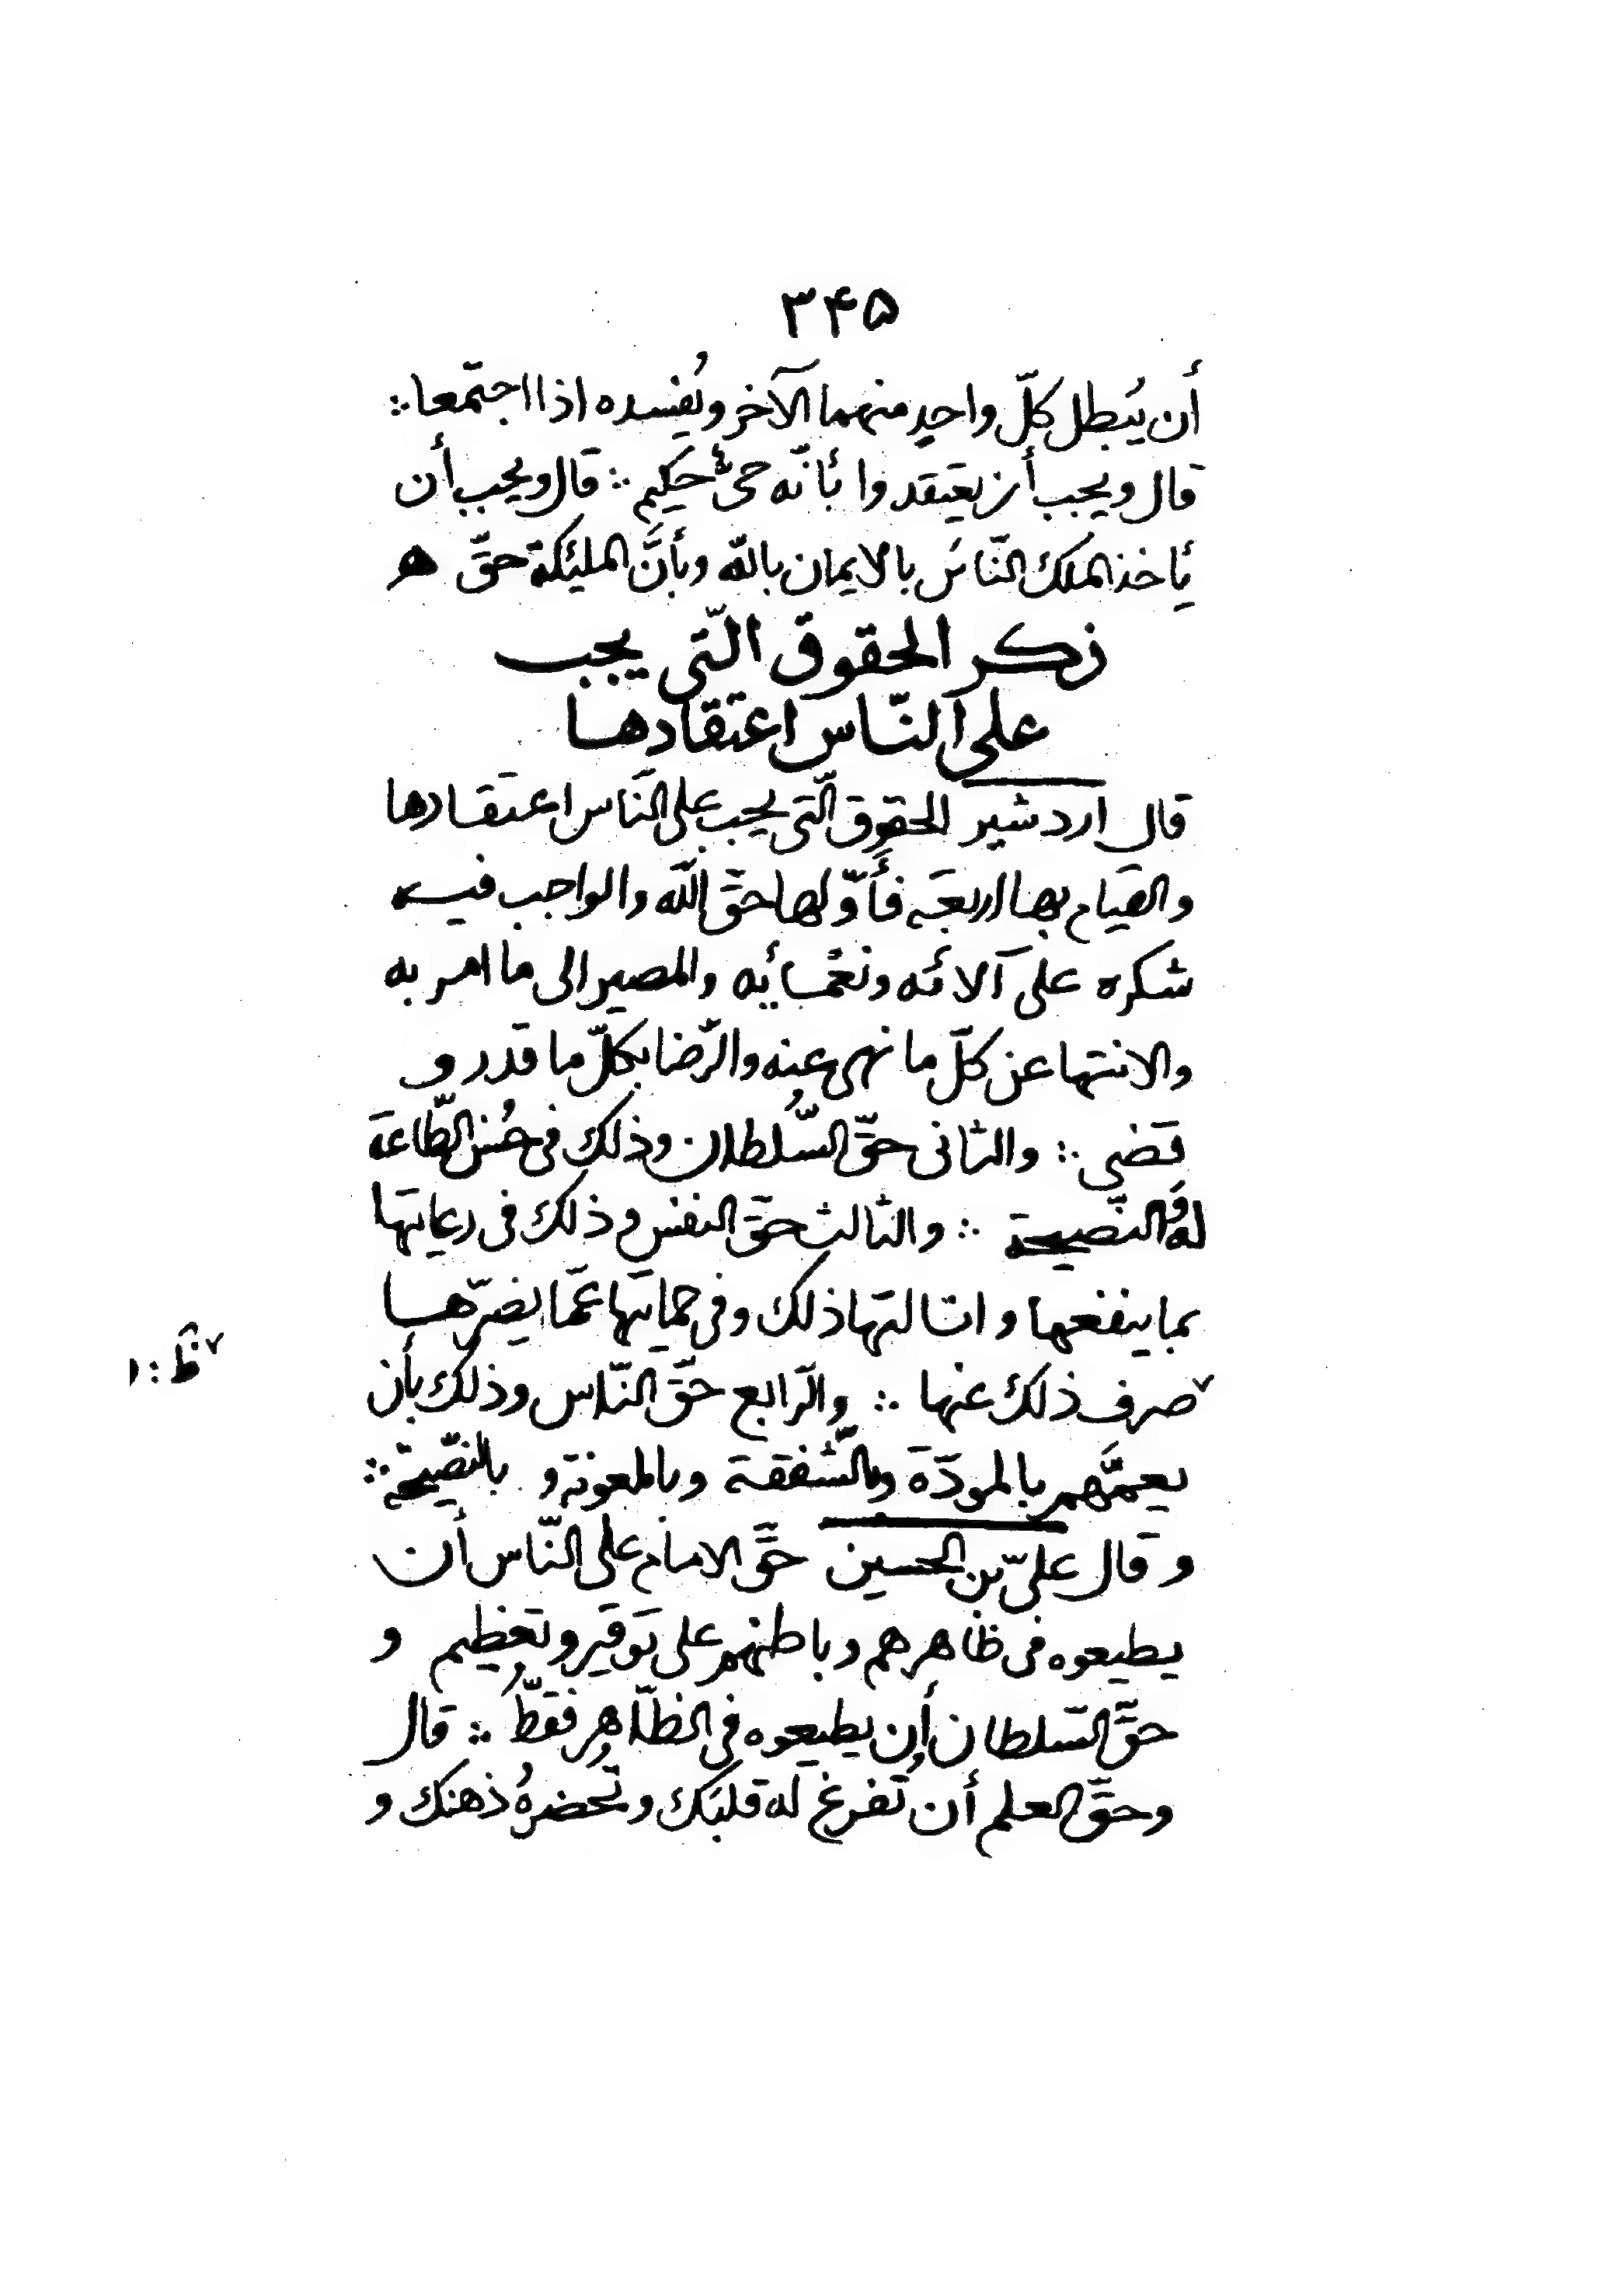 ۳۴۵
أن يُبطل كلّ واحدٍ منهما الآخر ويُفسده اذا اجتمعا ∴
قال ويجب أن يعتقدوا بأنّه حىّ حكيم ∴ قال ويجب أن
يأخذ الملك النّاسَ بالايمان بالله وبأنَّ الملئكة حقّ ه
ذكر الحقوق الّتى يجب
على النّاس اعتقادها
قال اردشير الحقوق الّتى يجب على النّاس اعتقادها
والقيام بها اربعة فأوّلها حقّ الله والواجب فيه
شكره على آلائه ونعْمائه والمصير الى ما امر به
والانتها عن كلّ ما نهى عنه والرّضا بكلّ ما قدر و
قضى ∴ والثانى حقّ السُّلطان وذلك فى حُسن الطّاعة
له والنّصيحة ∴ والثالث حقّ النفس وذلك فى رعايتها
بما ينفعها و انالتها ذلك وفى حمايتها عمّا يضرّها
٧صرف ذلك عنها ∴ والرّابع حقّ النّاس وذلك بأن
٧ ظ : و
يعمَّهم بالمودّة وبالشّفقة وبالمعونة و بالنّصيحة ∴
و قال علىّ بن الحسين حقّ الامام على النّاس أن
يطيعوه فى ظاهرهم وباطنهم على توقير وتعظيم و
حقّ السّلطان أن يطيعوه فى الظّاهر فقطّ ∴ قال
وحقّ العلم أن تُفرغ له قلبَك وتُحضرهُ ذهنك و